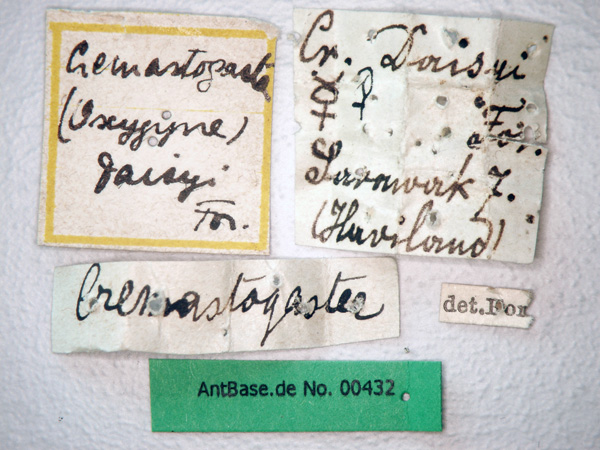 Cremastogaster
(Oxygyne)
Daisyi
For.
Cr. Daisyi
☿ ♀ For.
Sarawak 7.
(Haviland)
Cremastogaster
det.
AntBase.de No. 00432